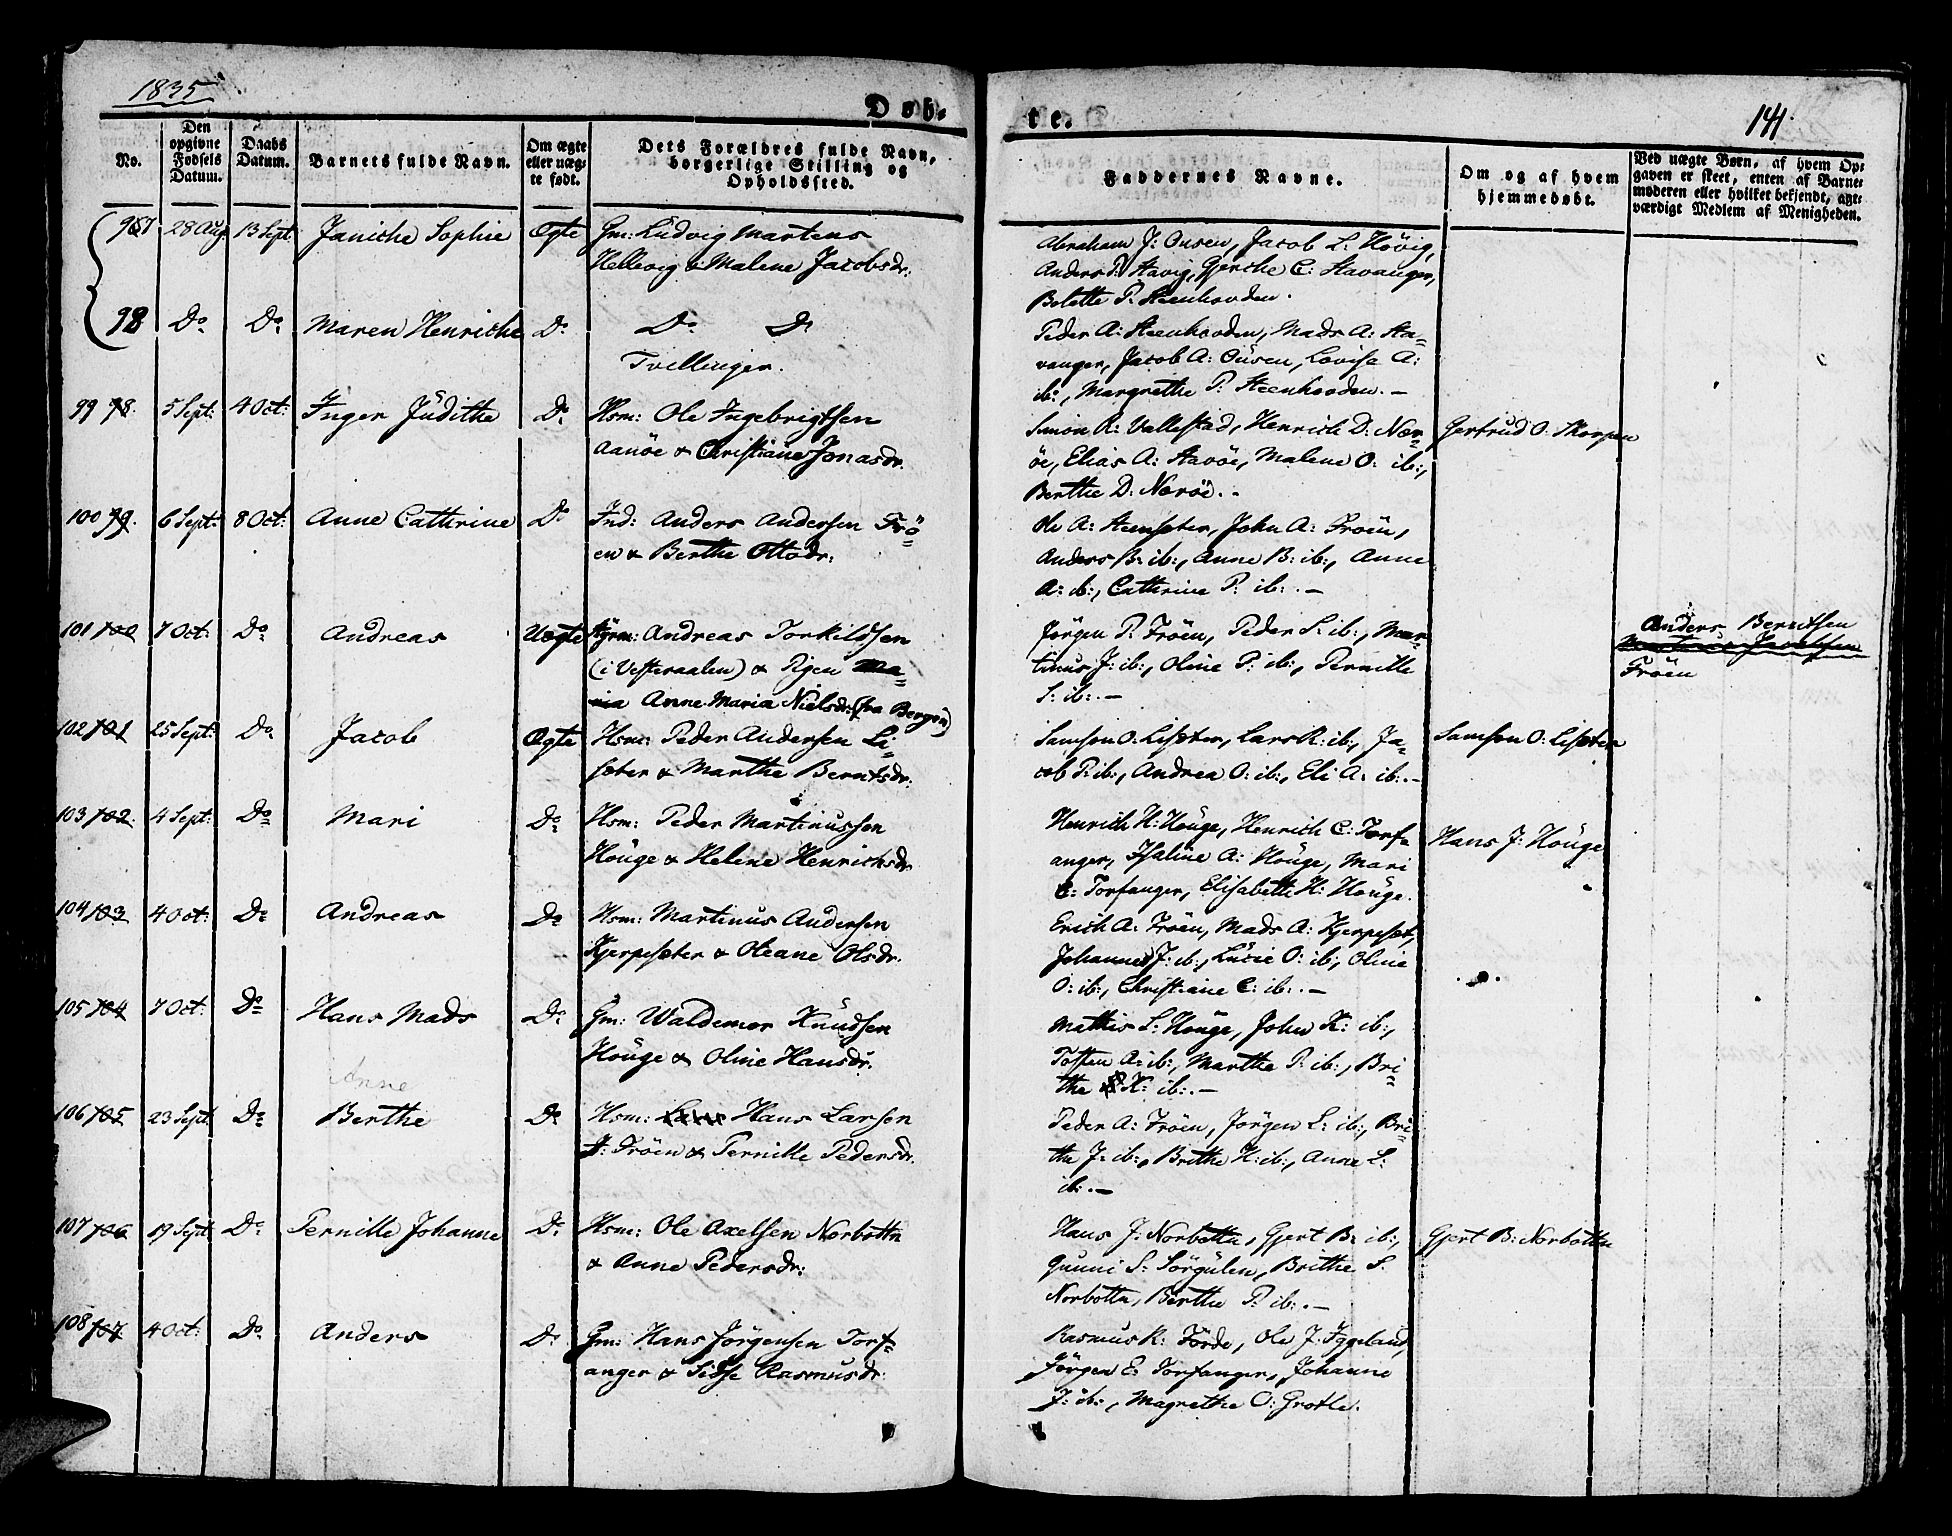 1835
Døb-
te.
141.
No.
Den opgivne Fødsels Datum.
Daabs Datum.
Barnets fulde Navn.
Om ægte eller uægte født.
Dets Forældres fulde Navn, borgerlige Stilling og Opholdssted.
Faddernes Navne.
Om og af hvem hjemmedøbt.
Ved uægte Børn, af hvem Opgaven er skeet, enten af Barnemoderen eller hvilket bekjendt, agtværdigt Medlem af Menigheden.
97 28 Aug 13 Sept Janiche Sophie Ægte Gm: Ludvig Martens
Hellevig & Malene Jacobsdr:
Abraham J: Ousen, Jacob L: Hövig,
Anders P: Stavig, Gjerche C: Stavanger,
Bolette P: Steenhovden.
98 Do Do Maren Henriche Do Do Do
Tvillinger.
Peder A: Steenhovden, Mads A: Sta-
vanger, Jacob A: Ousen, Lovise A:
ib:, Margrethe P: Steenhovden.-
99 98. 5 Sept: 4 Oct: Inger Judithe Do Hsm: Ole Ingebrigtsen
Aanöe & Christiane Jonasdr.
Simon R: Vallestad, Henrich D: Nær-
öe, Elias A: Stavöe, Malene O: ib:,
Berthe D: Næröe.-
Gertrud O: Skorpen
100 99. 6 Sept: 8 Oct: Anne Cathrine Do Ind: Anders Andersen Frö-
en & Berthe Ottodr:
Ole A: Steensæter, John A: Fröen,
Anders B: ib:, Anne B: ib:, Anne
A: ib:, Cathrine P: ib:.-
101 100 7 Oct: Do Andreas Uægte Andreas Torkildsen
(i Vesteraalen) & Pigen Ma-
ria Anne Maria Nielsdr: (fra Bergen)
Jörgen P: Fröen, Peder S: ib:, Mar-
tinus J: ib:, Oline P: ib:, Pernille
S: ib:.-
Anders Berntsen
Fröen
102 101 25 Sept: Do Jacob Ægte Hsm: Peder Andersen Li-
sæter & Marthe Berntsdr:
Samson O: Lisæter, Lars R: ib:, Ja-
cob P: ib:, Andrea O: ib:, Eli A: ib:.-
Samson O: Lisæter
103 102. 4 Sept: Do Mari Do Hsm: Peder Martinussen
Houge & Helene Henrichsdr
Henrich H: Houge, Henrich C: Torf-
anger, Isaline A: Houge, Mari
C: Torfanger, Elisabeth H: Houge.
Hans J: Houge
104 103 4 Oct: Do Andreas Do Hsm: Martinus Andersen
Kjerpesæter & Oleane Olsdr.
Erich A: Fröen, Mads A: Kjerpesæt,
Johannes J: ib:, Lucie O: ib:, Oline
O: ib:, Christiane C: ib:.-
105 104 7 Oct: Do Hans Mads Do Gm: Waldemor Knudsen
Houge & Oline Hansdr.
Mathis L: Houge, John K: ib:,
Tosten A: ib:, Marthe P: ib:, Bri-
the K: ib:.-
Anne
106 105 23 Sept Do Berthe Do Hsm: Lars Hans Larsen
J: Fröen & Pernille Pedersdr.
Peder A: Fröen, Jörgen L: ib:, Bri-
the J: ib:, Brithe H: ib:, Anne L:
ib:.-
107 106 19 Sept Do Pernille Johanne Do Hsm: Ole Axelsen Norbotten
& Anne Pedersdr:
Hans J: Norbotten, Gjert B: ib:,
Gunni S: Sörgulen, Brithe S.
Norbotten, Berthe P: ib:.-
Gjert B: Norbotten
108 107 4 Oct: Do Anders Do Gm: Hans Jörgensen Torf-
anger & Sidse Rasmusdr:
Rasmus R: Förde, Ole J: Iggeland,
Jörgen E: Torfanger, Johanne
J: ib:, Magrethe O: Grotle.